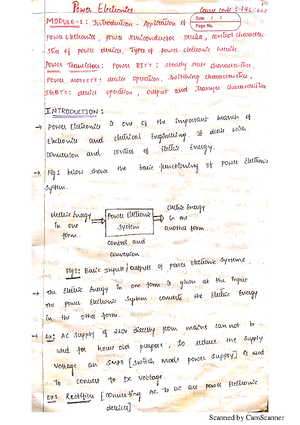 Power Electronics
Course code:
Date / /
Page No.
MODULE-1: Introduction - Application of
Power Electronics, power semiconductor device, control character-
istics of power devices, Types of power electronic circuits.
Power Transistors: Power BJT's: steady state characteristics,
Power MOSFET's: device operation, switching characteristics,
IGBT's: device operation, output and Transfer characteristics
INTRODUCTION:
→ Power Electronics is one of the important branch of
Electronics and electrical Engineering. It deals with
conversion and control of electric Energy.
→ Fig 1 below shows the basic functioning of Power Electronic
system.
electric Energy
in one
form
Power Electronic
System
electric Energy
in the
another form
control and
conversion
Fig1: Basic Inputs/outputs of Power Electronic Systems.
→ The Electric Energy in one form is given at the Input
The Power Electronic system converts the electric Energy
in the other form.
→ Ex: AC supply of 220v directly from mains cannot be
used for house old purpose, to reduce the supply
voltage an SMPS [Switch Mode power Supply] is used
To convert to DC voltage.
Ex: Rectifier [converting AC to DC are power Electronic
device]
Scanned by CamScanner